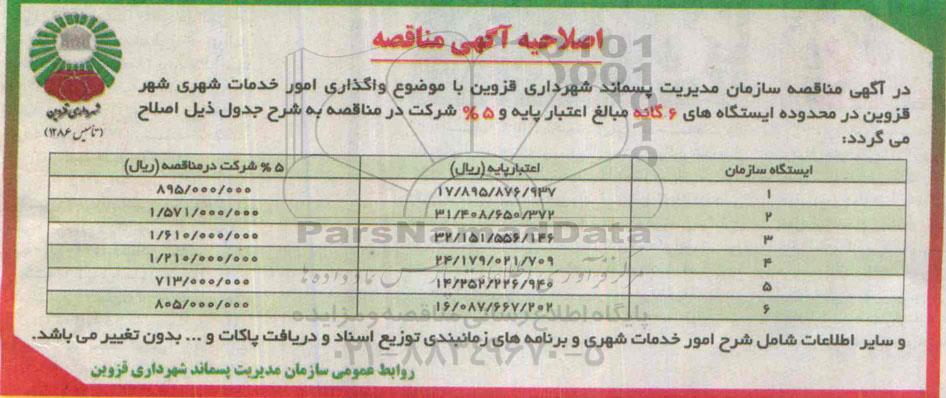 اصلاحیه آگهی مناقصه
شهرداری قزوین
(تأسیس ۱۲۸۶)
در آگهی مناقصه سازمان مدیریت پسماند شهرداری قزوین با موضوع واگذاری امور خدمات شهری شهر
قزوین در محدوده ایستگاه های ۶ گانه مبالغ اعتبار پایه و ۵ % شرکت در مناقصه به شرح جدول ذیل اصلاح
می گردد:
ایستگاه سازمان اعتبارپایه (ریال) ۵ % شرکت درمناقصه (ریال)
۱ ۱۷/۸۹۵/۸۷۶/۹۳۷ ۸۹۵/۰۰۰/۰۰۰
۲ ۳۱/۴۰۸/۶۵۰/۳۷۲ ۱/۵۷۱/۰۰۰/۰۰۰
۳ ۳۲/۱۵۱/۵۵۶/۱۴۶ ۱/۶۱۰/۰۰۰/۰۰۰
۴ ۲۴/۱۷۹/۰۲۱/۷۰۹ ۱/۲۱۰/۰۰۰/۰۰۰
۵ ۱۴/۲۵۲/۲۲۶/۹۴۰ ۷۱۳/۰۰۰/۰۰۰
۶ ۱۶/۰۸۷/۶۶۷/۲۰۲ ۸۰۵/۰۰۰/۰۰۰
ParsNamadData
پایگاه اطلاع رسانی مناقصه و مزایده
۰۲۱-۸۸۳۴۹۶۷۰-۵
و سایر اطلاعات شامل شرح امور خدمات شهری و برنامه های زمانبندی توزیع اسناد و دریافت پاکات و ... بدون تغییر می باشد.
روابط عمومی سازمان مدیریت پسماند شهرداری قزوین